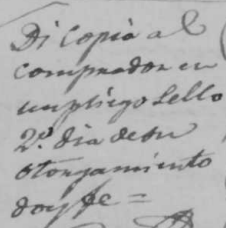 Di copia al
comprador en
un pliego Sello
2º. dia de su
otorgamiento
doy fe =